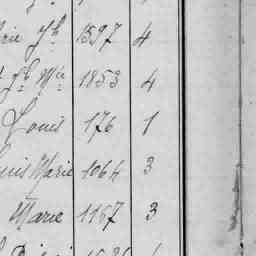 rie Jh 1597 4
Jh Mie 1853 4
Louis 176 1
uis Marie 1064 3
Marie 1157 3